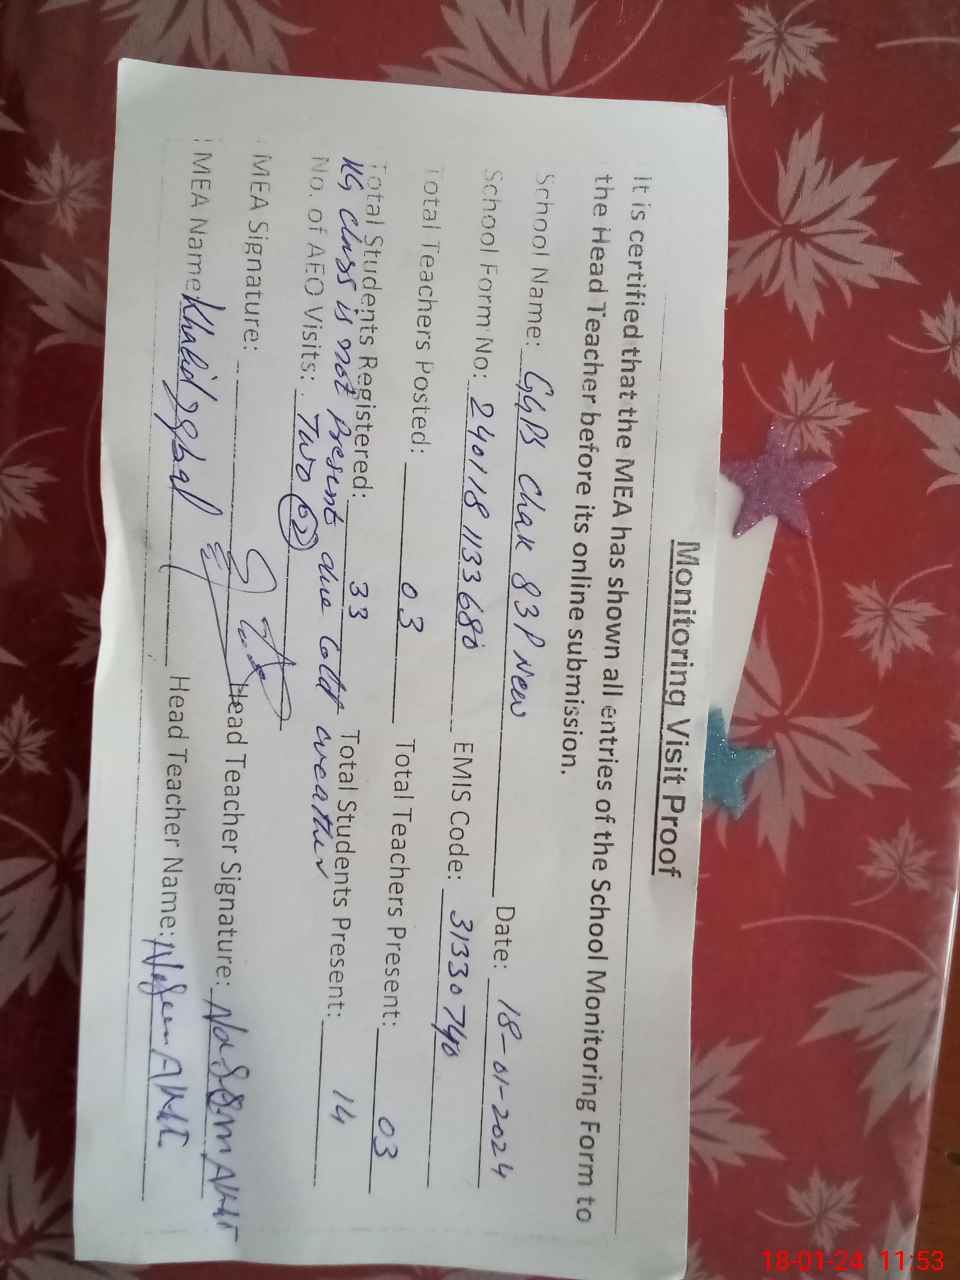 Monitoring Visit Proof
It is certified that the MEA has shown all entries of the School Monitoring Form to
the Head Teacher before its online submission.
School Name: GGPS Chak 83 P New Date: 18-01-2024
School Form No: 240118 1133680 EMIS Code: 31330740
Total Teachers Posted: 03 Total Teachers Present: 03
Total Students Registered: 33 Total Students Present: 14
KG class is not Present due Cold weather
No. of AEO Visits: Two 02
MEA Signature: Head Teacher Signature:
MEA Name Khalid Iqbal Head Teacher Name:
18-01-24 11:53